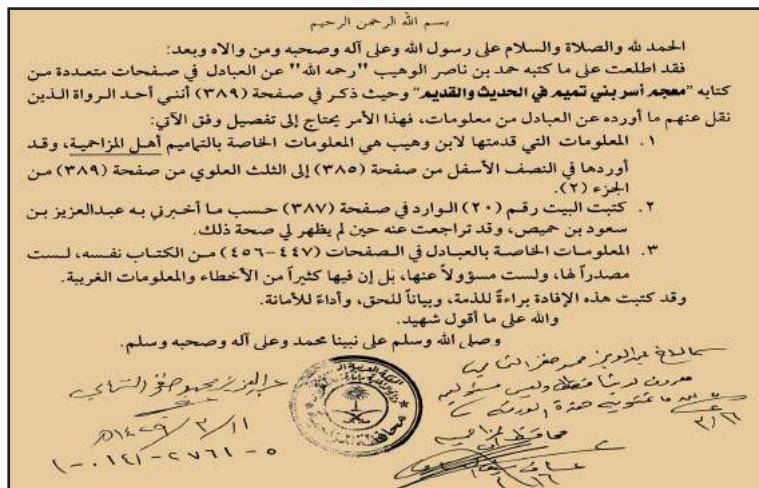 بسم الله الرحمن الرحيم
الحمد لله والصلاة والسلام على رسول الله وعلى آله وصحبه ومن والاه وبعد:
فقد اطلعت على ما كتبه حمد بن ناصر الوهيب "رحمه الله" عن العبادل في صفحات متعددة من
كتابه "معجم أسر بني تميم في الحديث والقديم" وحيث ذكر في صفحة (٣٨٩) أنني أحد الرواة الذين
نقل عنهم ما أورده عن العبادل من معلومات، فهذا الأمر يحتاج إلى تفصيل وفق الآتي:
١. المعلومات التي قدمتها لابن وهيب هي المعلومات الخاصة بالتماميم أهل المزاحمية، وقد
أوردها في النصف الأسفل من صفحة (٣٨٥) إلى الثلث العلوي من صفحة (٣٨٩) من
الجزء (٢).
٢. كتبت البيت رقم (٢٠) الوارد في صفحة (٣٨٧) حسب ما أخبرني به عبدالعزيز بن
سعود بن خميص، وقد تراجعت عنه حين لم يظهر لي صحة ذلك.
٣. المعلومات الخاصة بالعبادل في الصفحات (٤٤٧-٤٥٦) من الكتاب نفسه، لست
مصدراً لها، ولست مسؤولاً عنها، بل إن فيها كثيراً من الأخطاء والمعلومات الغريبة.
وقد كتبت هذه الإفادة براءةً للذمة، وبياناً للحق، وأداءً للأمانة.
والله على ما أقول شهيد.
وصلى الله وسلم على نبينا محمد وعلى آله وصحبه وسلم.
عبدالعزيز محمد
١٤٢٩/٣/١١هـ
محافظة